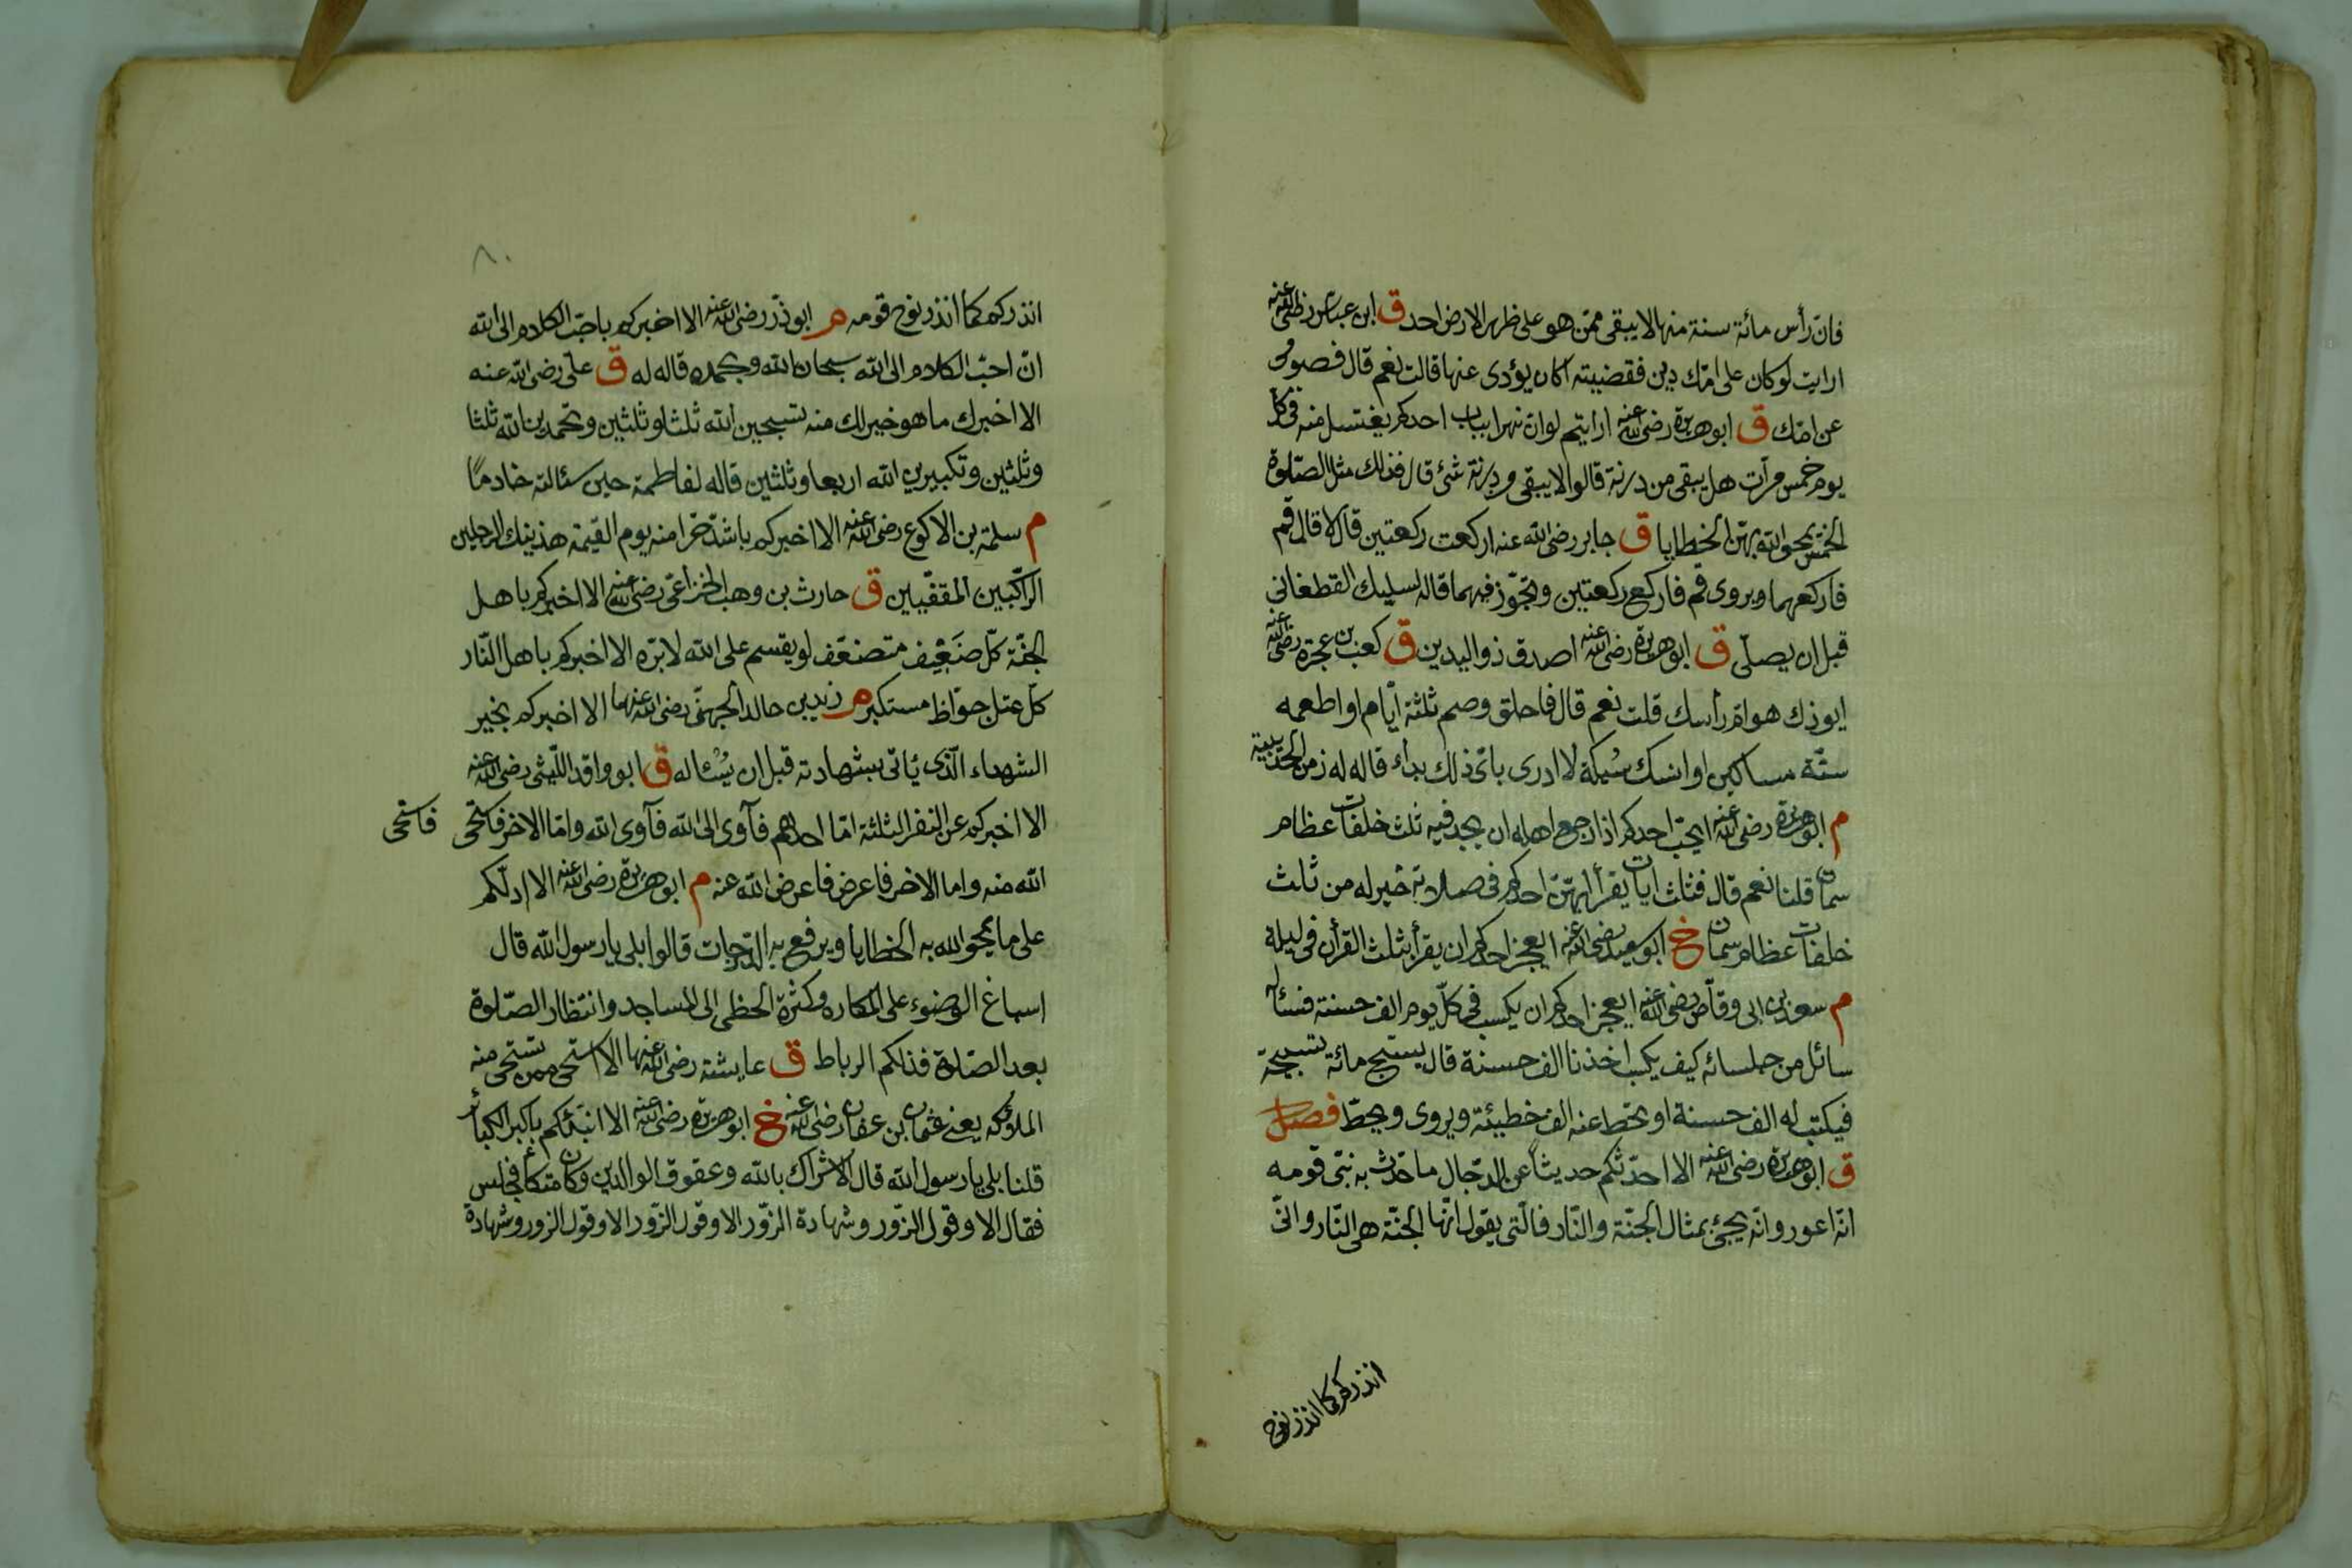 فانّ رأس مائة سنة منها لا يبقى ممّن هو على ظهر الارض احد ق ابن عبّاس رضى الله عنه
ارايت لو كان على امّك دين فقضيته اكان يؤدى عنها قالت نعم قال فصومى
عن امّك ق ابو هريرة رضى الله عنه ارايتم لو انّ نهرا بباب احدكم يغتسل منه فى كل
يوم خمس مرّات هل يبقى من درنة قالوا لا يبقى من درنة شئ قال فذلك مثل الصّلوة
الخمس يمحو الله بهنّ الخطايا ق جابر رضى الله عنه اركعت ركعتين قال لا قال قم
فاركعهما ويروى قم فاركع ركعتين وتجوّز فيهما قاله لسليك القطغانى
قبل ان يصلّى ق ابو هريرة رضى الله عنه اصدق ذو اليدين ق كعب بن عجرة رضى الله عنه
ايوذك هوامّ رأسك قلت نعم قال فاحلق وصم ثلثة ايّام او اطعمه
ستّة مساكين او انسك نسيكة لا ادرى باىّ ذلك بداء قاله له زمن الحديبية
م ابو هريرة رضى الله عنه ايحبّ احدكم اذا رجع اهله ان يجد فيه ثلث خلفات عظام
سمان قلنا نعم قال فثلث ايات يقرأ بهنّ احدكم فى صلاته خير له من ثلث
خلفات عظام سمان خ ابو سعيد رضى الله عنه ايعجز احدكم ان يقرأ بثلث القرأن فى ليلة
م سعد بن ابى وقّاص رضى الله عنه ايعجز احدكم ان يكسب فى كلّ يوم الف حسنة فسئاله
سائل من جلسائه كيف يكسب احدنا الف حسنة قال يسبّح مائة تسبيحة
فيكتب له الف حسنة او تحط عنه الف خطيئة ويروى ويحطّ فصل
ق ابو هريرة رضى الله عنه الا احدّثكم حديثاً عن الدّجال ما حدّث به نبىّ قومه
انّه اعور وانّه يجئ بمثال الجنّة والنّار فالّتى يقول انّها الجنّة هى النّار وانّى
انذركم كما انذر نوح
٨٠
انذركم كما انذر نوح قومه م ابو ذرّ رضى الله عنه الا اخبركم باحبّ الكلام الى الله
انّ احبّ الكلام الى الله سبحان الله وبحمده قاله له ق علىّ رضى الله عنه
الا اخبرك ما هو خير لك منه تسبحين الله ثلثا وثلثين وتحمدين الله ثلثا
وثلثين وتكبيرين الله اربعا وثلثين قاله لفاطمة حين سئالته خادماً
م سلمة بن الاكوع رضى الله عنه الا اخبركم باشدّ حرّا منه يوم القيمة هذينك الرجلين
الرّاكبين المقفّيين ق حارث بن وهب الخزاعىّ رضى الله عنه الا اخبركم باهل
الجنّة كلّ ضَعِيف متضعّف لو يقسم على الله لابرّه الا اخبركم باهل النّار
كلّ عتل جوّاظ مستكبر م زيد بن خالد الجهنّى رضى الله عنهما الا اخبركم بخير
الشهداء الّذى يأتى بشهادته قبل ان يُسْئاله ق ابو واقد اللّيثى رضى الله عنه
الا اخبركم عن النفر الثلثة امّا احدهم فآوى الى الله فآوى الله وامّا الاخر فاستحى فاستحى
الله منه واما الاخر فاعرض فاعرض الله عنه م ابو هريرة رضى الله عنه الا ادلّكم
على ما يمحو الله به الخطايا ويرفع به الدّرجات قالوا بلى يا رسول الله قال
اسباغ الوضوء على المكاره وكثرة الخطى الى المساجد وانتظار الصّلوة
بعد الصّلوة فذلكم الرباط ق عايشة رضى الله عنها الا استحى ممن تستحى منه
الملئكه يعنى عثمان بن عفان رضى الله عنه خ ابو هريرة رضى الله عنه الا انبّئكم باكبر الكبائر
قلنا بلى يا رسول الله قال الاشراك بالله وعقوق الوالدين وكان متكأ فجلس
فقال الا وقول الزّور وشهادة الزّور الا وقول الزّور الا وقول الزور وشهادة